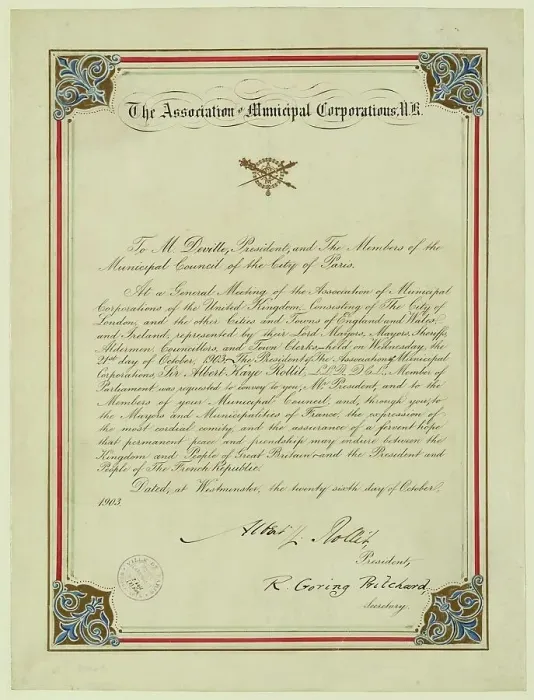 The Association of Municipal Corporations, U.K.
To M. Deville, President, and The Members of the
Municipal Council of the City of Paris.
At a General Meeting of the Association of Municipal
Corporations of the United Kingdom, Consisting of The City of
London, and the other Cities and Towns of England and Wales,
and Ireland, represented by their Lord Mayors, Mayors, Sheriffs,
Aldermen, Councillors, and Town Clerks held on Wednesday, the
21st day of October, 1903. The President of The Association of Municipal
Corporations, Sir Albert Kaye Rollit, LL.D. D.C.L. Member of
Parliament was requested to convey to you, Mr President, and to the
Members of your Municipal Council, and, through you, to
the Mayors and Municipalities of France, the expression of
the most cordial comity, and the assurance of a fervent hope
that permanent peace and friendship may endure between the
Kingdom and People of Great Britain and the President and
People of The French Republic.
Dated, at Westminster, the twenty sixth day of October,
1903.
Albert K. Rollit,
President,
R. Goring Pritchard,
Secretary.
VILLE DE PARIS